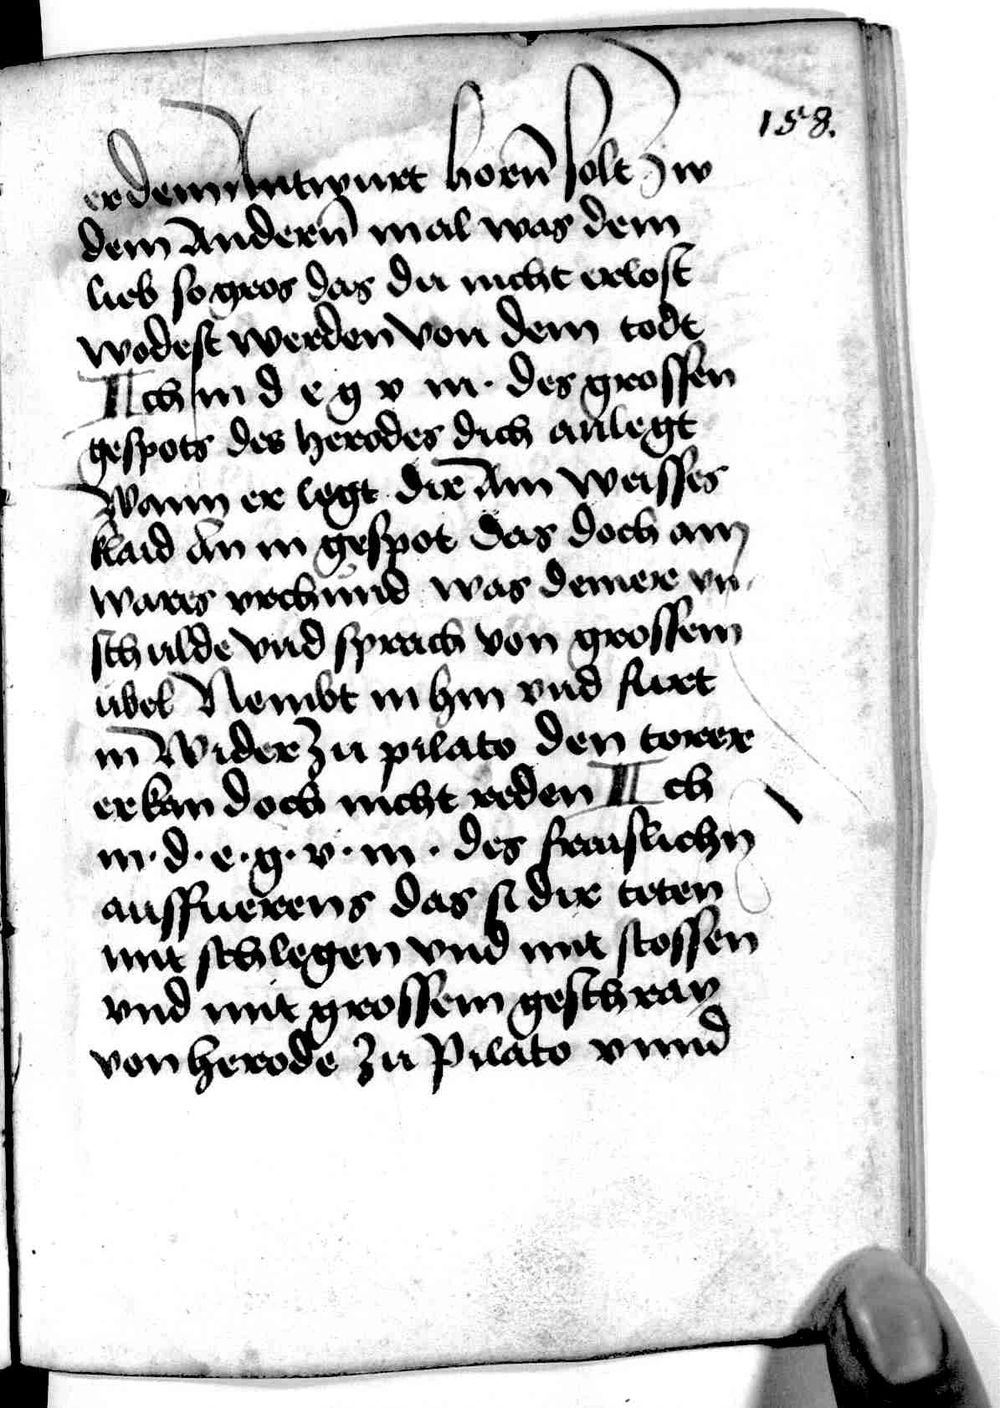 158.
er dem Antwurt horn̄ solt Zw
dem Andern̄ mal was dem
lieb so gros das du nicht erlost
wodest werden von dem todt
Ich m d e g v m · des grossen
gespots des herodes dich anlegt
Wann er legt dir Am weisses
klaid An in gespot das doch am
wares vrchund was deiner vn
schulde vnd sprach von grossem
ubel Nembt in hin vnd furt
in Wider Zu pilato den torer
er kan doch nicht reden Ich
m · d · e · g · v · m · des fraislichn
ausfuerens das si dir teten
mit schlegen vnd mit stossen
vnd mit grossem geschray
von herode Zu Pilato vnnd